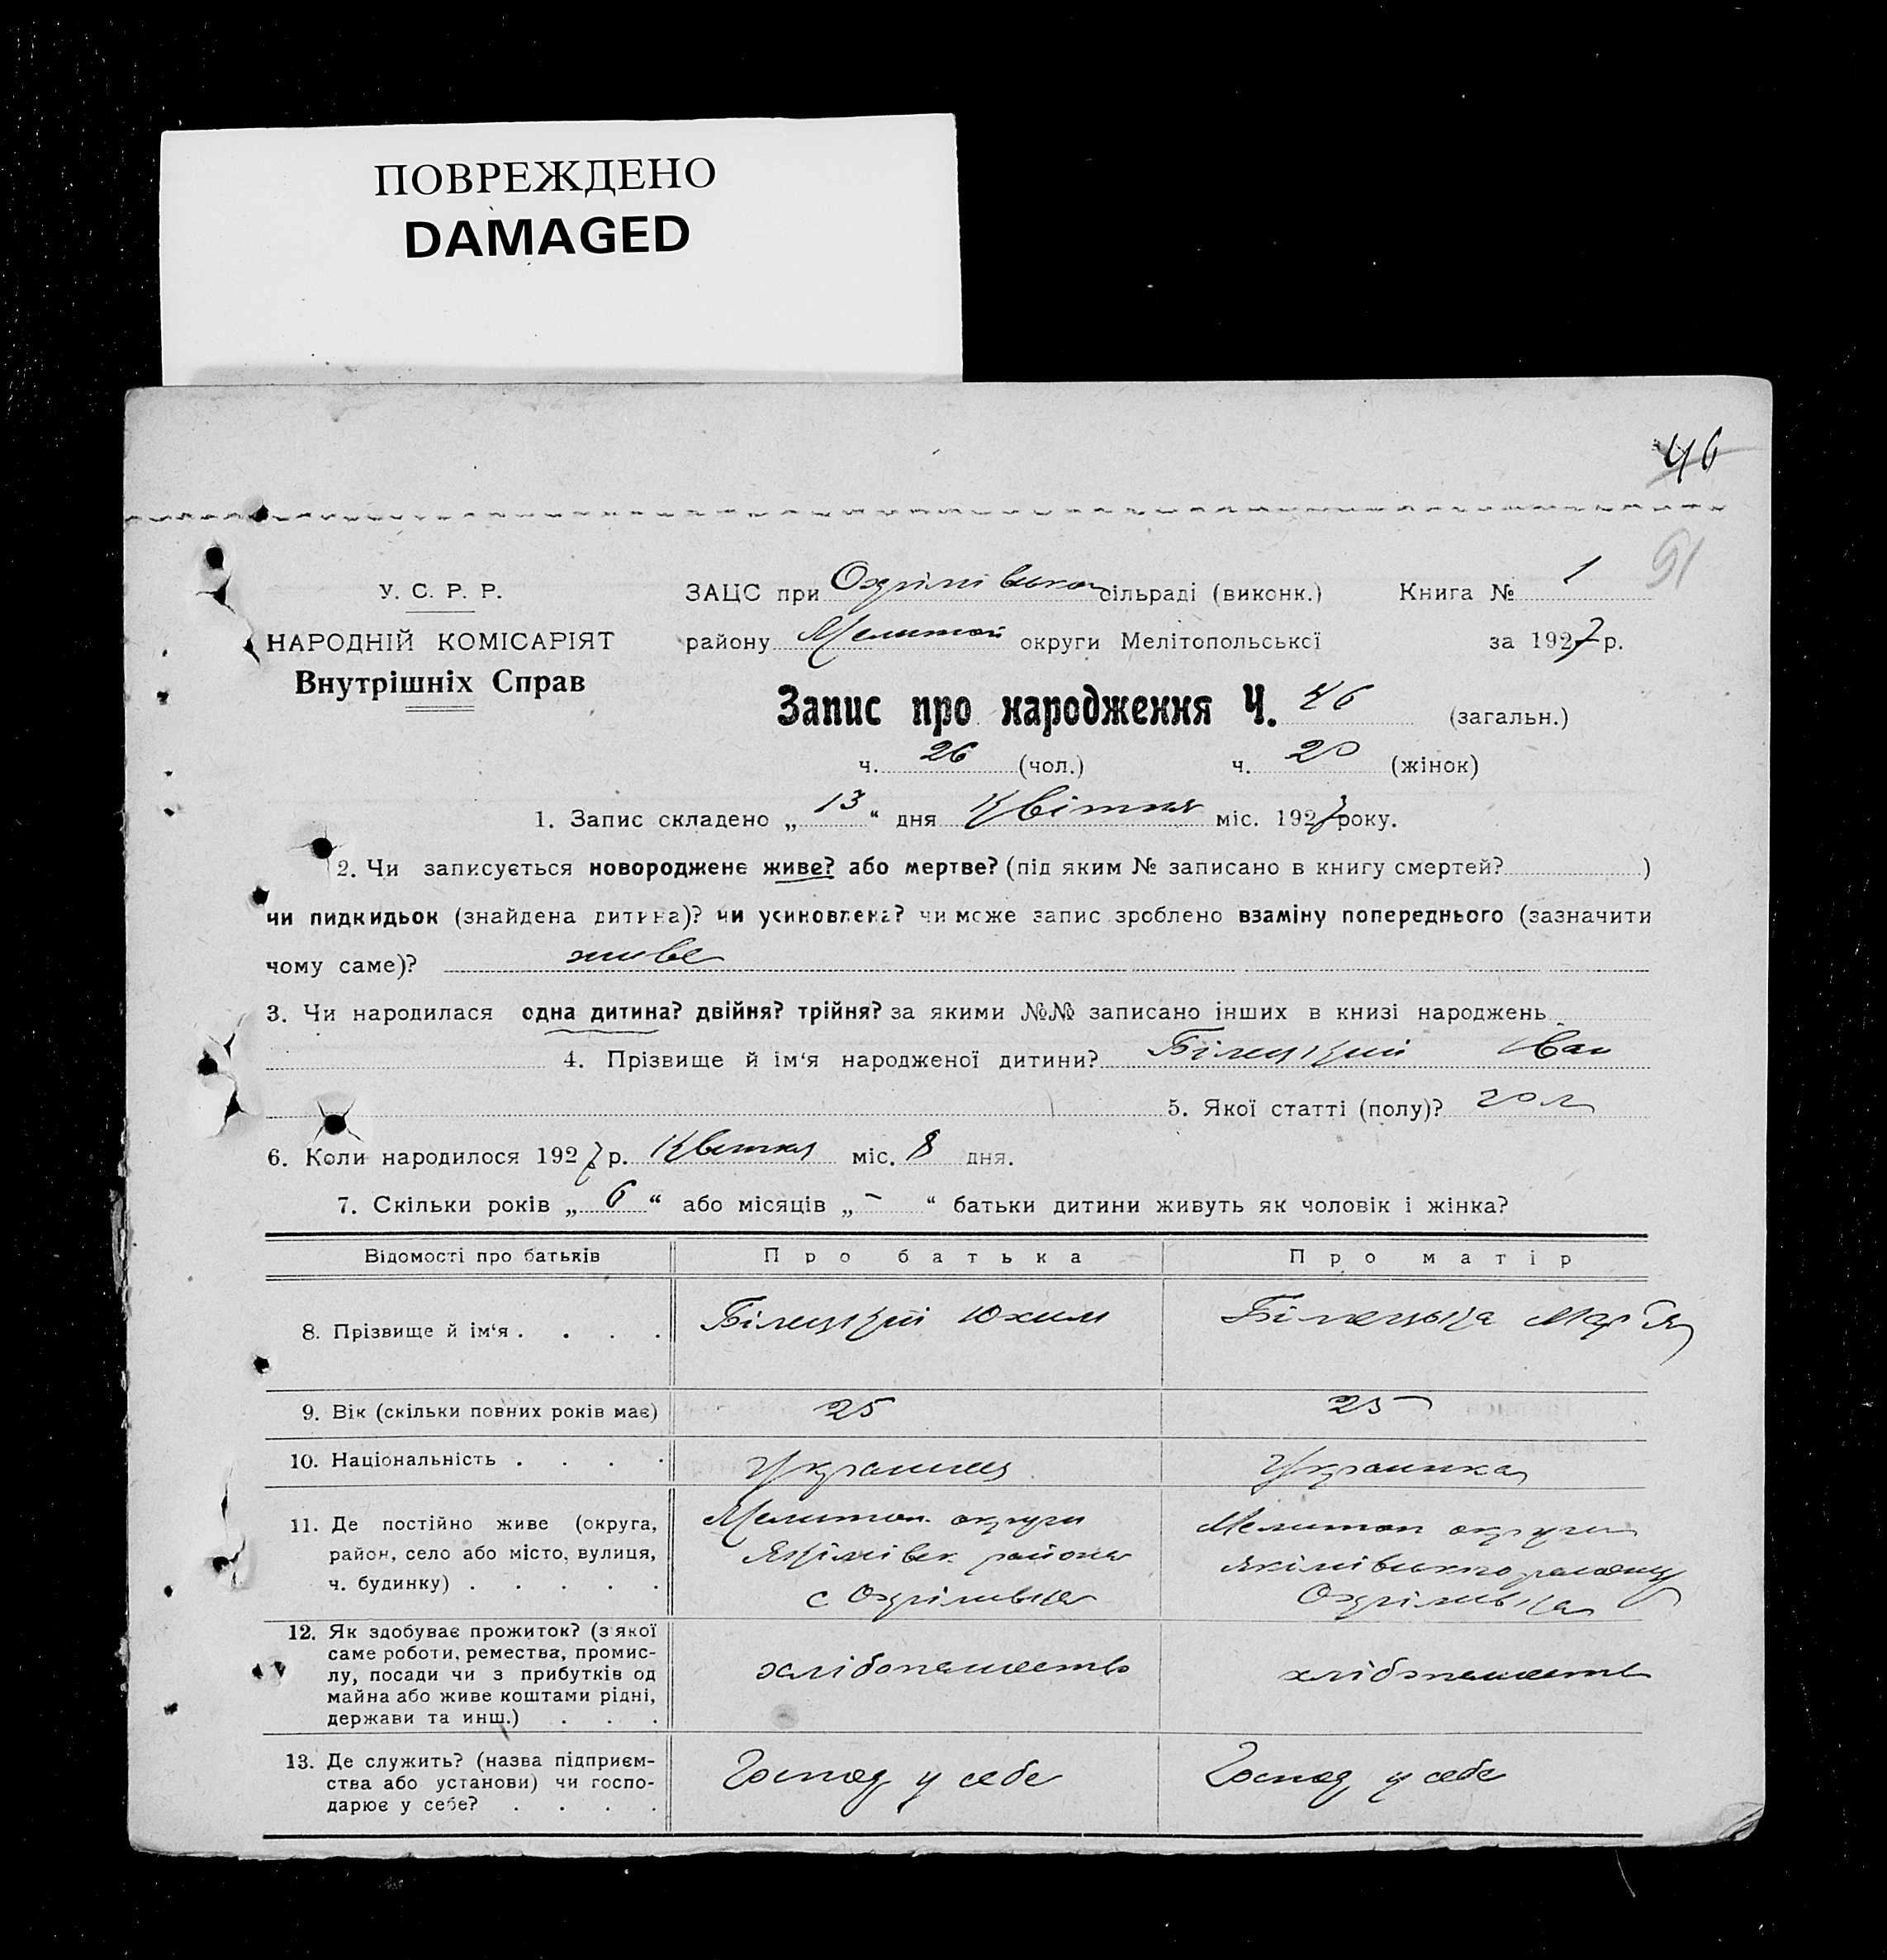 ПОВРЕЖДЕНО
DAMAGED
46
91
У. С. Р. Р.
НАРОДНІЙ КОМІСАРІЯТ
Внутрішніх Справ
ЗАЦС при Охрімівської сільраді (виконк.) Книга № 1
району Мелитоп округи Мелітопольської за 1927 р.
Запис про народження Ч. 46 (загальн.)
ч. 26 (чол.) ч. 20 (жінок)
1. Запис складено „13“ дня Квітня міс. 1927 року.
2. Чи записується новороджене живе? або мертве? (під яким № записано в книгу смертей? )
чи пидкидьок (знайдена дитина)? чи усиновлена? чи може запис зроблено взаміну попереднього (зазначити
чому саме)? живе
3. Чи народилася одна дитина? двійня? трійня? за якими №№ записано інших в книзі народжень
4. Прізвище й ім‘я народженої дитини? Білецкий Іван
5. Якої статті (полу)? чол
6. Коли народилося 1927 р. Квітня міс. 8 дня.
7. Скільки років „6“ або місяців „-“ батьки дитини живуть як чоловік і жінка?
Відомості про батьків Про батька Про матір
8. Прізвище й ім‘я . . . . Білецкий Юхим Білецька Мар'я
9. Вік (скільки повних років має) 25 25
10. Національність . . . . Українец Українка
11. Де постійно живе (округа, район, село або місто, вулиця, ч. будинку) . . . . .
Мелитоп. округи
Якімівск. района
с Охрімівка
Мелитоп округи
Якімівського району
Охрімівка
12. Як здобуває прожиток? (з якої саме роботи, ремества, промислу, посади чи з прибутків од майна або живе коштами рідні, держави та инш.) . . .
хлібопашество хлібопашеств
13. Де служить? (назва підприємства або установи) чи господарює у себе? . . . .
Господ у себе Господ у себе